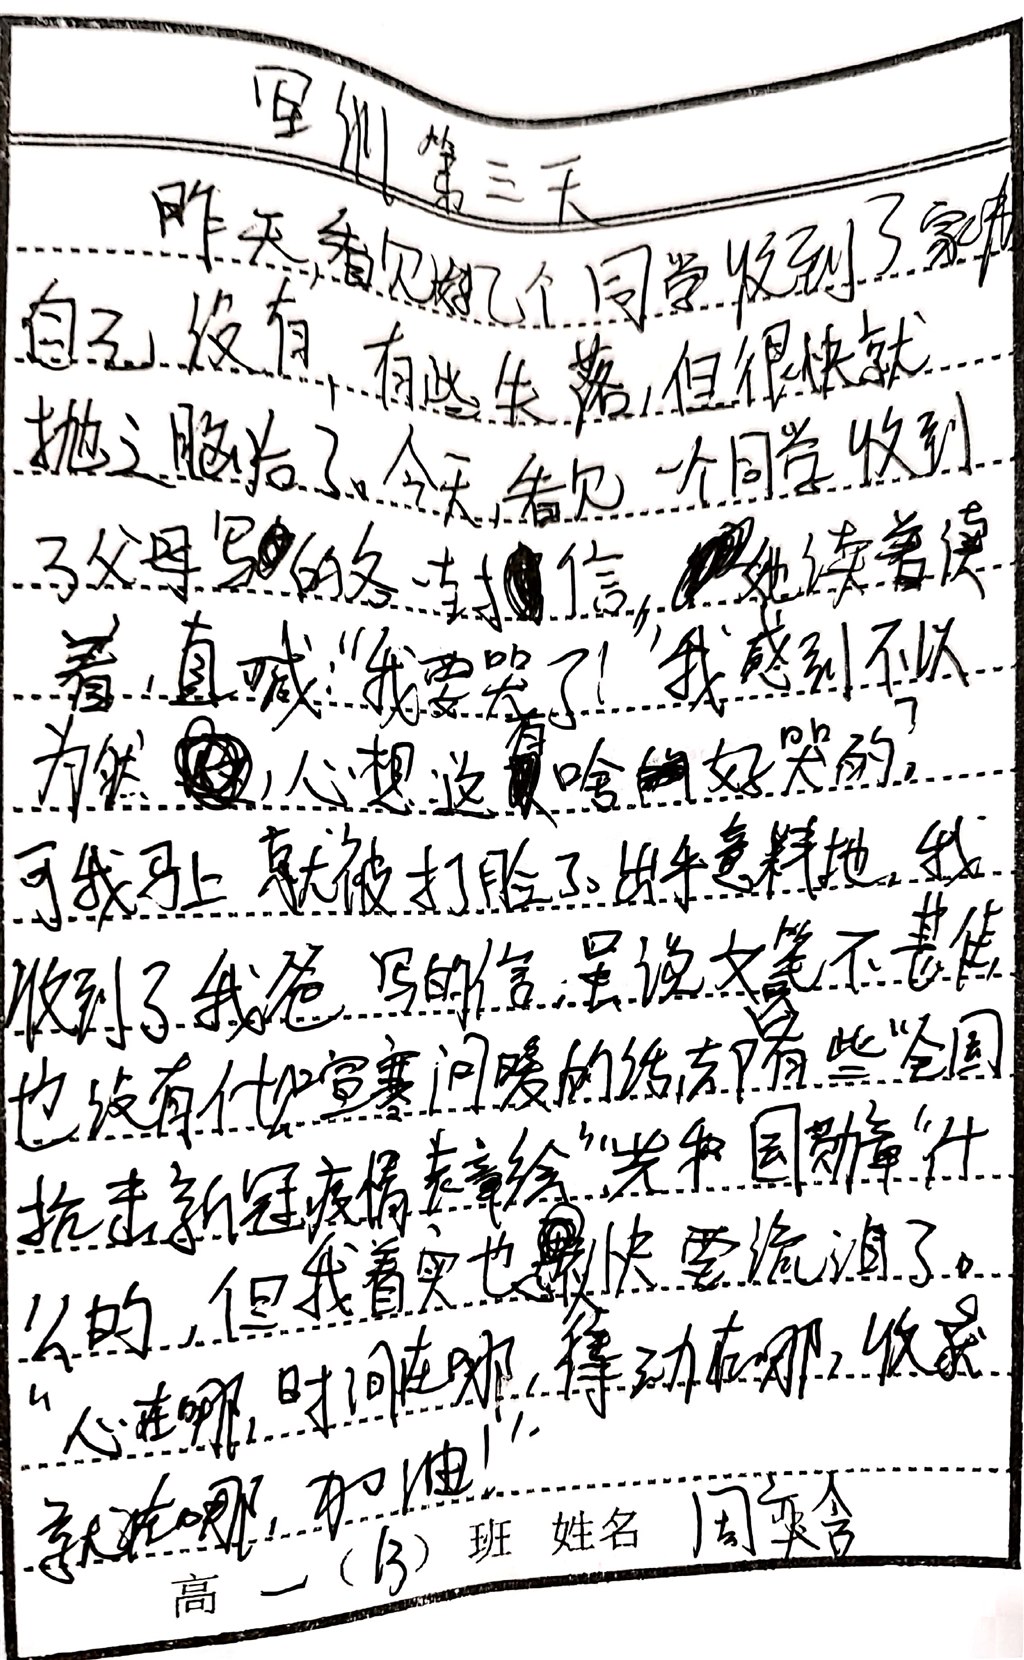 军训第三天
昨天,看见好几个同学收到了家书
自己没有,有些失落,但很快就
抛之脑后了。今天,看见一个同学收到
了父母写的信,她读着读
着,直喊:“我要哭了!”我感到不以
为然,心想这有啥好哭的?
可我马上就被打脸了。出乎意料地,我
收到了我爸写的信,虽说文笔不甚佳,
也没有什么嘘寒问暖的话,都有些“全国
抗击新冠疫情表彰给”“共和国勋章”什
么的,但我着实也快要流泪了。
“心在哪,时间在哪,行动在哪,收获
就在哪,加油!”
高一(13)班 姓名 周奕含